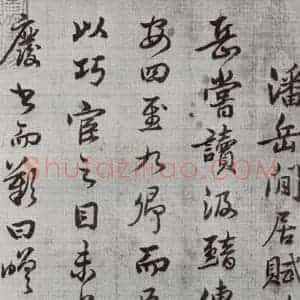 潘岳閒居賦
岳嘗讀汲黯傳
安四至九卿而
以巧宦之目未
廢書而歎曰嗟
Shufaziliao.COM